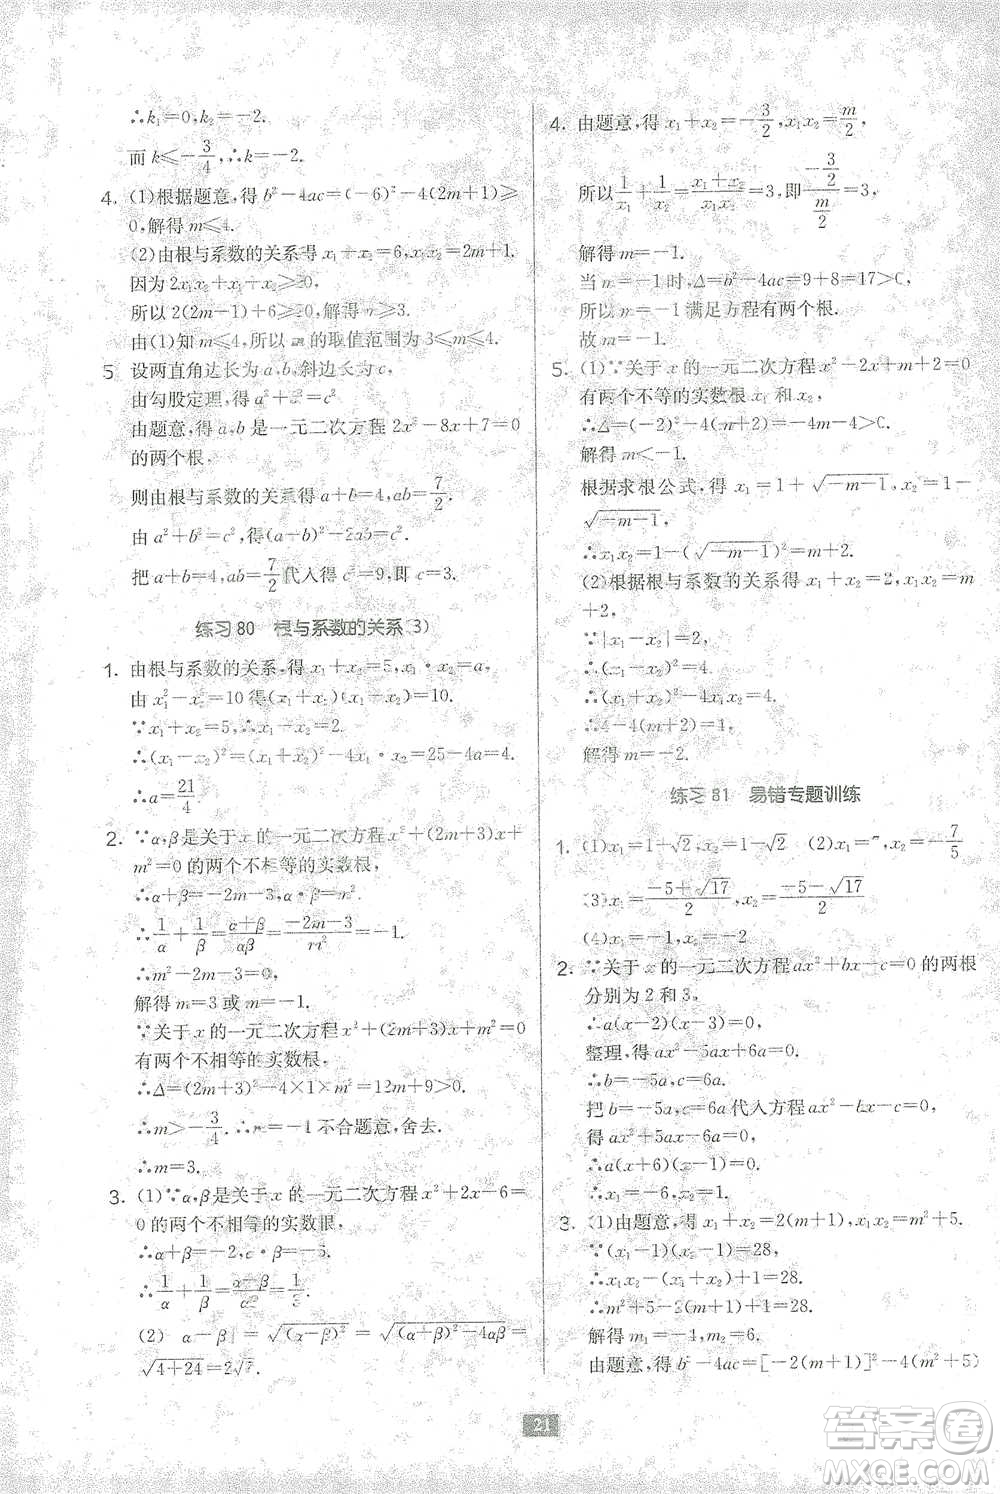 ∴k₁=0,k₂=-2.
而 k≤-3/4,∴k=-2.
4. (1)根据题意,得 b²-4ac=(-6)²-4(2m+1)≥
0,解得 m≤4.
(2)由根与系数的关系得 x₁+x₂=6,x₁x₂=2m+1.
因为 2x₁x₂+x₁+x₂≥20,
所以 2(2m+1)+6≥20,解得 m≥3.
由(1)知 m≤4,所以 m 的取值范围为 3≤m≤4.
5 设两直角边长为 a,b,斜边长为 c,
由勾股定理,得 a²+b²=c²
由题意,得 a,b 是一元二次方程 2x²-8x+7=0
的两个根,
则由根与系数的关系得 a+b=4,ab=7/2.
由 a²+b²=c²,得(a+b)²-2ab=c²,
把 a+b=4,ab=7/2代入得 c²=9,即 c=3.
练习 80 根与系数的关系(3)
1. 由根与系数的关系,得 x₁+x₂=5,x₁·x₂=a,
由 x₁²-x₂²=10 得(x₁+x₂)(x₁-x₂)=10.
∵x₁+x₂=5,∴x₁-x₂=2.
∴(x₁-x₂)²=(x₁+x₂)²-4x₁·x₂=25-4a=4.
∴a=21/4
2. ∵α,β是关于 x 的一元二次方程 x²+(2m+3)x+
m²=0 的两个不相等的实数根,
∴α+β=-2m-3,αβ=m².
∴1/α+1/β=(α+β)/αβ=(-2m-3)/m²=-1.
∴m²-2m-3=0.
解得 m=3 或 m=-1.
∵关于 x 的一元二次方程 x²+(2m+3)x+m²=0
有两个不相等的实数根,
∴Δ=(2m+3)²-4×1×m²=12m+9>0.
∴m>-3/4,∴m=-1 不合题意,舍去.
∴m=3.
3. (1)∵α,β是关于 x 的一元二次方程 x²+2x-6=
0 的两个不相等的实数根,
∴α+β=-2,α·β=-6.
∴1/α+1/β=(α+β)/αβ=1/3
(2) |α-β|=√(α-β)²=√(α+β)²-4αβ=
√4+24=2√7.
4. 由题意,得 x₁+x₂=-3/2,x₁x₂=m/2,
所以1/x₁+1/x₂=(x₁+x₂)/x₁x₂=3,即(-3/2)/(m/2)=3,
解得 m=-1.
当 m=-1 时,Δ=b²-4ac=9+8=17>0,
所以 m=-1 满足方程有两个根.
故 m=-1.
5. (1)∵关于 x 的一元二次方程 x²-2x+m+2=0
有两个不等的实数根 x₁ 和 x₂,
∴Δ=(-2)²-4(m+2)=-4m-4>0.
解得 m<-1.
根据求根公式,得 x₁=1+√-m-1,x₂=1-
√-m-1,
∴x₁x₂=1-(√-m-1)²=m+2.
(2)根据根与系数的关系得 x₁+x₂=2,x₁x₂=m
+2,
∵|x₁-x₂|=2,
∴(x₁-x₂)²=4.
∴(x₁+x₂)²-4x₁x₂=4.
∴4-4(m+2)=4.
解得 m=-2.
练习 81 易错专题训练
1. (1)x₁=1+√2,x₂=1-√2 (2)x₁= ,x₂=-7/5
(3)x₁=(-5+√17)/2,x₂=(-5-√17)/2
(4)x₁=-1,x₂=-2
2. ∵关于 x 的一元二次方程 ax²+bx-c=0 的两根
分别为 2 和 3,
∴a(x-2)(x-3)=0.
整理,得 ax²-5ax+6a=0.
∴b=-5a,c=6a.
把 b=-5a,c=6a代入方程 ax²-bx-c=0,
得 ax²+5ax-6a=0.
∴a(x+6)(x-1)=0.
∴x₁=-6,x₂=1.
3. (1)由题意,得 x₁+x₂=2(m+1),x₁x₂=m²+5.
∵(x₁-1)(x₂-1)=28,
∴x₁x₂-(x₁+x₂)+1=28.
∴m²+5-2(m+1)+1=28.
解得 m₁=-4,m₂=6.
由题意,得 b²-4ac=[-2(m+1)]²-4(m²+5)
21
答案圈
MXQE.COM